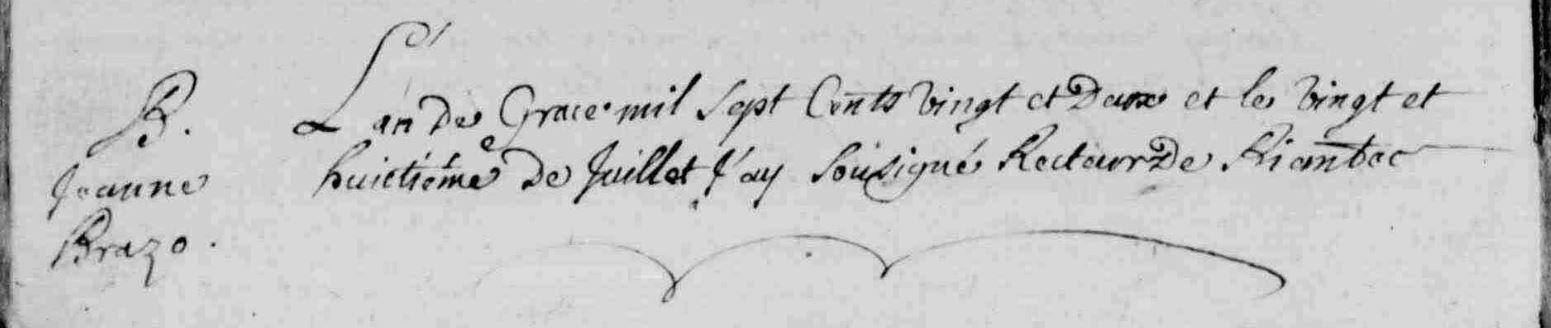 B.
Jeanne
Brazo.
L'an de Grace mil Sept Cents vingt et Deux et le vingt et
huictième de Juillet J'ay Sousigné Recteur de Riantec